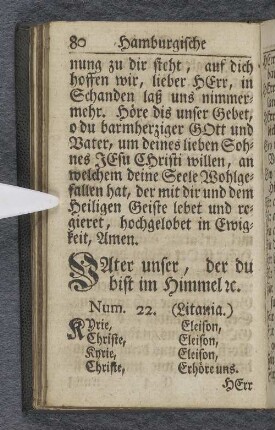 80 Hamburgische
nung zu dir steht, auf dich
hoffen wir, lieber HErr, in
Schanden laß uns nimmer-
mehr. Höre dis unser Gebet,
o du barmherziger GOtt und
Vater, um deines lieben Soh-
nes JEsu CHristi willen, an
welchem deine Seele Wohlge-
fallen hat, der mit dir und dem
Heiligen Geiste lebet und re-
gieret, hochgelobet in Ewig-
keit, Amen.
VAter unser, der du
bist im Himmel ꝛc.
Num. 22. (Litania.)
KYrie, Eleison,
Christe, Eleison,
Kyrie, Eleison,
Christe, Erhöre uns.
HErr